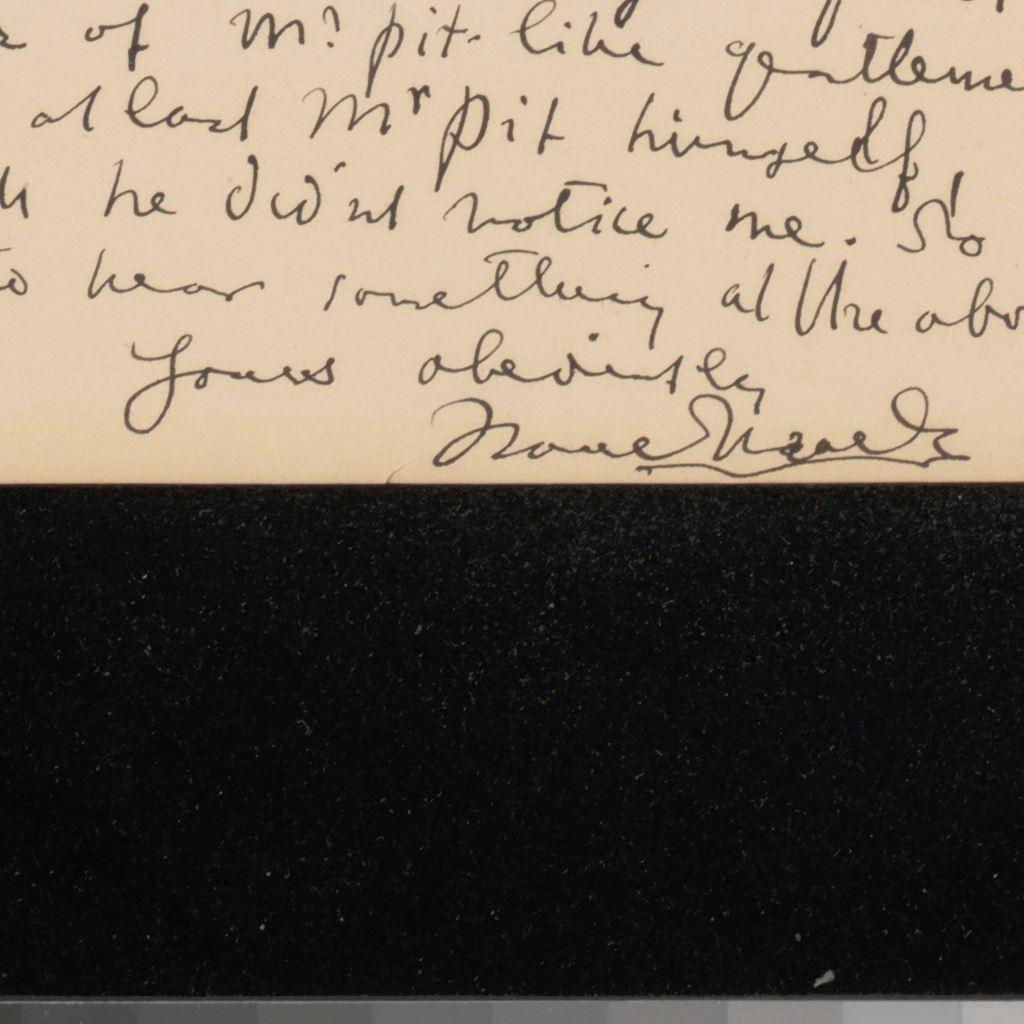 of Mr. pit-like gentleme
at last Mr Pit himself,
he did'nt notice me. So
to hear something at the abo
Yours obediently